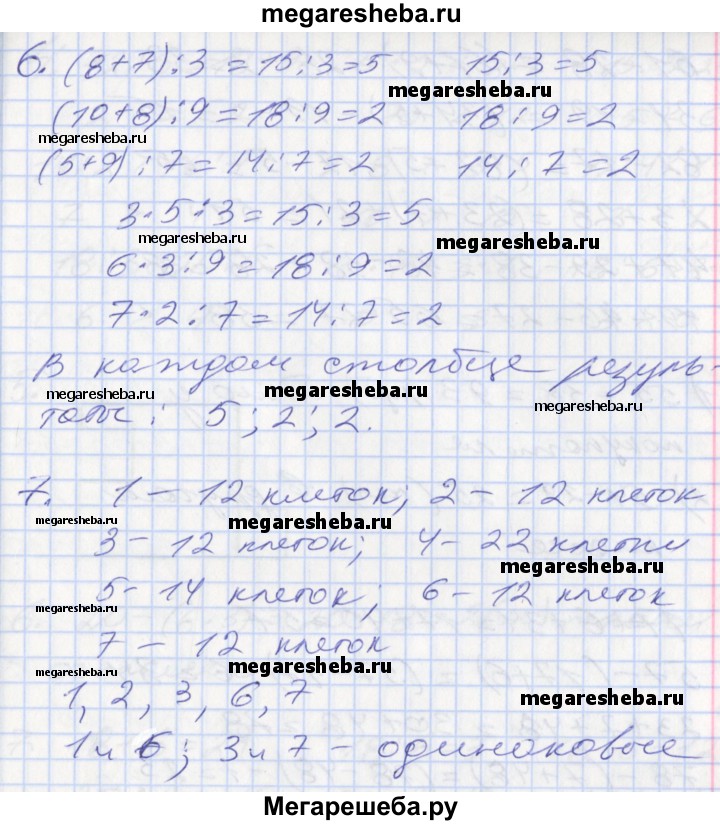 megaresheba.ru
6. (8+7):3 = 15:3=5 15:3=5
megaresheba.ru
(10+8):9=18:9=2 18:9=2
megaresheba.ru megaresheba.ru
(5+9):7=14:7=2 14:7=2
3·5:3=15:3=5
megaresheba.ru megaresheba.ru
6·3:9=18:9=2
7·2:7=14:7=2
В каждом столбце резуль-
megaresheba.ru megaresheba.ru megaresheba.ru
таты: 5; 2; 2.
7. 1 – 12 клеток; 2 – 12 клеток
megaresheba.ru megaresheba.ru
3 – 12 клеток; 4 – 22 клетки
megaresheba.ru
5 – 14 клеток; 6 – 12 клеток
megaresheba.ru
7 – 12 клеток
megaresheba.ru megaresheba.ru
1, 2, 3, 6, 7
megaresheba.ru
1 и 6; 3 и 7 – одинаковые
Мегарешеба.ру